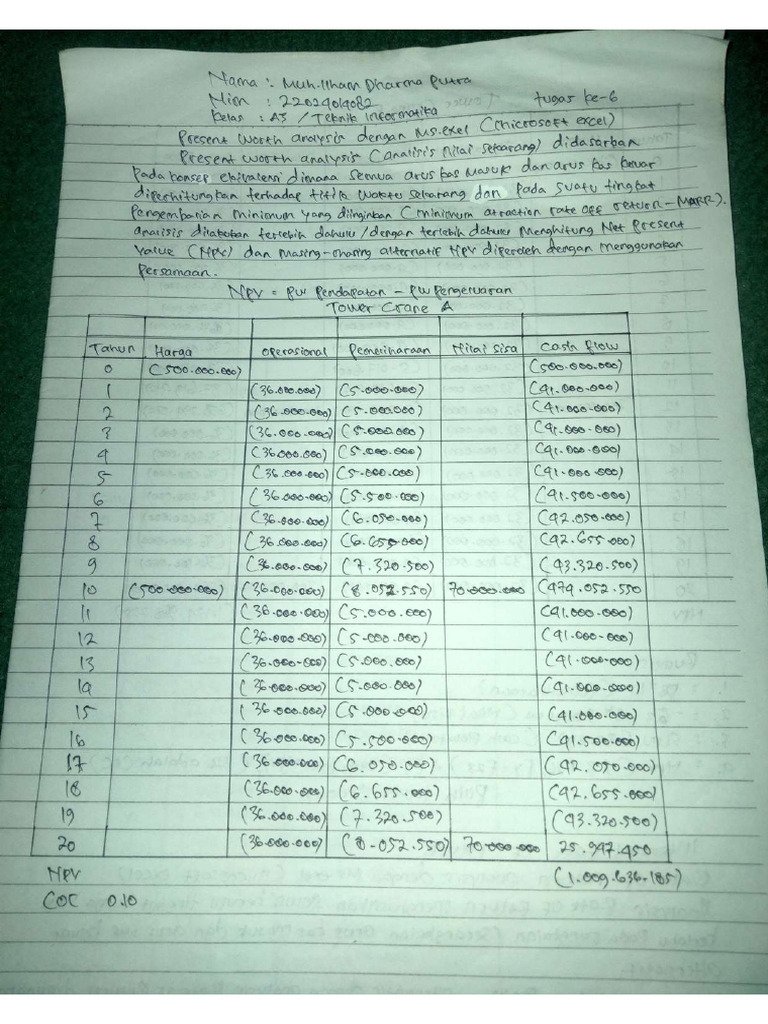 Nama : Muh.Ilham Dharma Putra
Nim : 22024014082 tugas ke-6
Kelas : A3 / Teknik Informatika
Present Worth analysis dengan Ms.exel (Microsoft excel)
Present worth analysis (analisis Nilai sekarang) didasarkan
pada konsep ekivalensi dimana semua arus kas masuk dan arus kas keluar
diperhitungkan terhadap titik waktu sekarang dan pada suatu tingkat
pengembalian minimum yang diinginkan (minimum atraction rate off return-MARR).
analisis dilakukan terlebih dahulu/dengan terlebih dahulu Menghitung Net Present
Value (NPV) dan Masing-masing alternatif NPV diperoleh dengan menggunakan
persamaan.
NPV = PW pendapatan - PW pengeluaran
Tower Crane A
Tahun Harga operasional Pemeliharaan Nilai Sisa Cash flow
0 (500.000.000) (500.000.000)
1 (36.000.000) (5.000.000) (41.000.000)
2 (36.000.000) (5.000.000) (41.000.000)
3 (36.000.000) (5.000.000) (41.000.000)
4 (36.000.000) (5.000.000) (41.000.000)
5 (36.000.000) (5.000.000) (41.000.000)
6 (36.000.000) (5.500.000) (41.500.000)
7 (36.000.000) (6.050.000) (42.050.000)
8 (36.000.000) (6.655.000) (42.655.000)
9 (36.000.000) (7.320.500) (43.320.500)
10 (500.000.000) (36.000.000) (8.052.550) 70.000.000 (474.052.550
11 (36.000.000) (5.000.000) (41.000.000)
12 (36.000.000) (5.000.000) (41.000.000)
13 (36.000.000) (5.000.000) (41.000.000)
14 (36.000.000) (5.000.000) (41.000.000)
15 (36.000.000) (5.000.000) (41.000.000)
16 (36.000.000) (5.500.000) (41.500.000)
17 (36.000.000) (6.050.000) (42.050.000)
18 (36.000.000) (6.655.000) (42.655.000)
19 (36.000.000) (7.320.500) (43.320.500)
20 (36.000.000) (8.052.550) 70.000.000 25.947.450
NPV (1.009.636.185)
COC 0.10